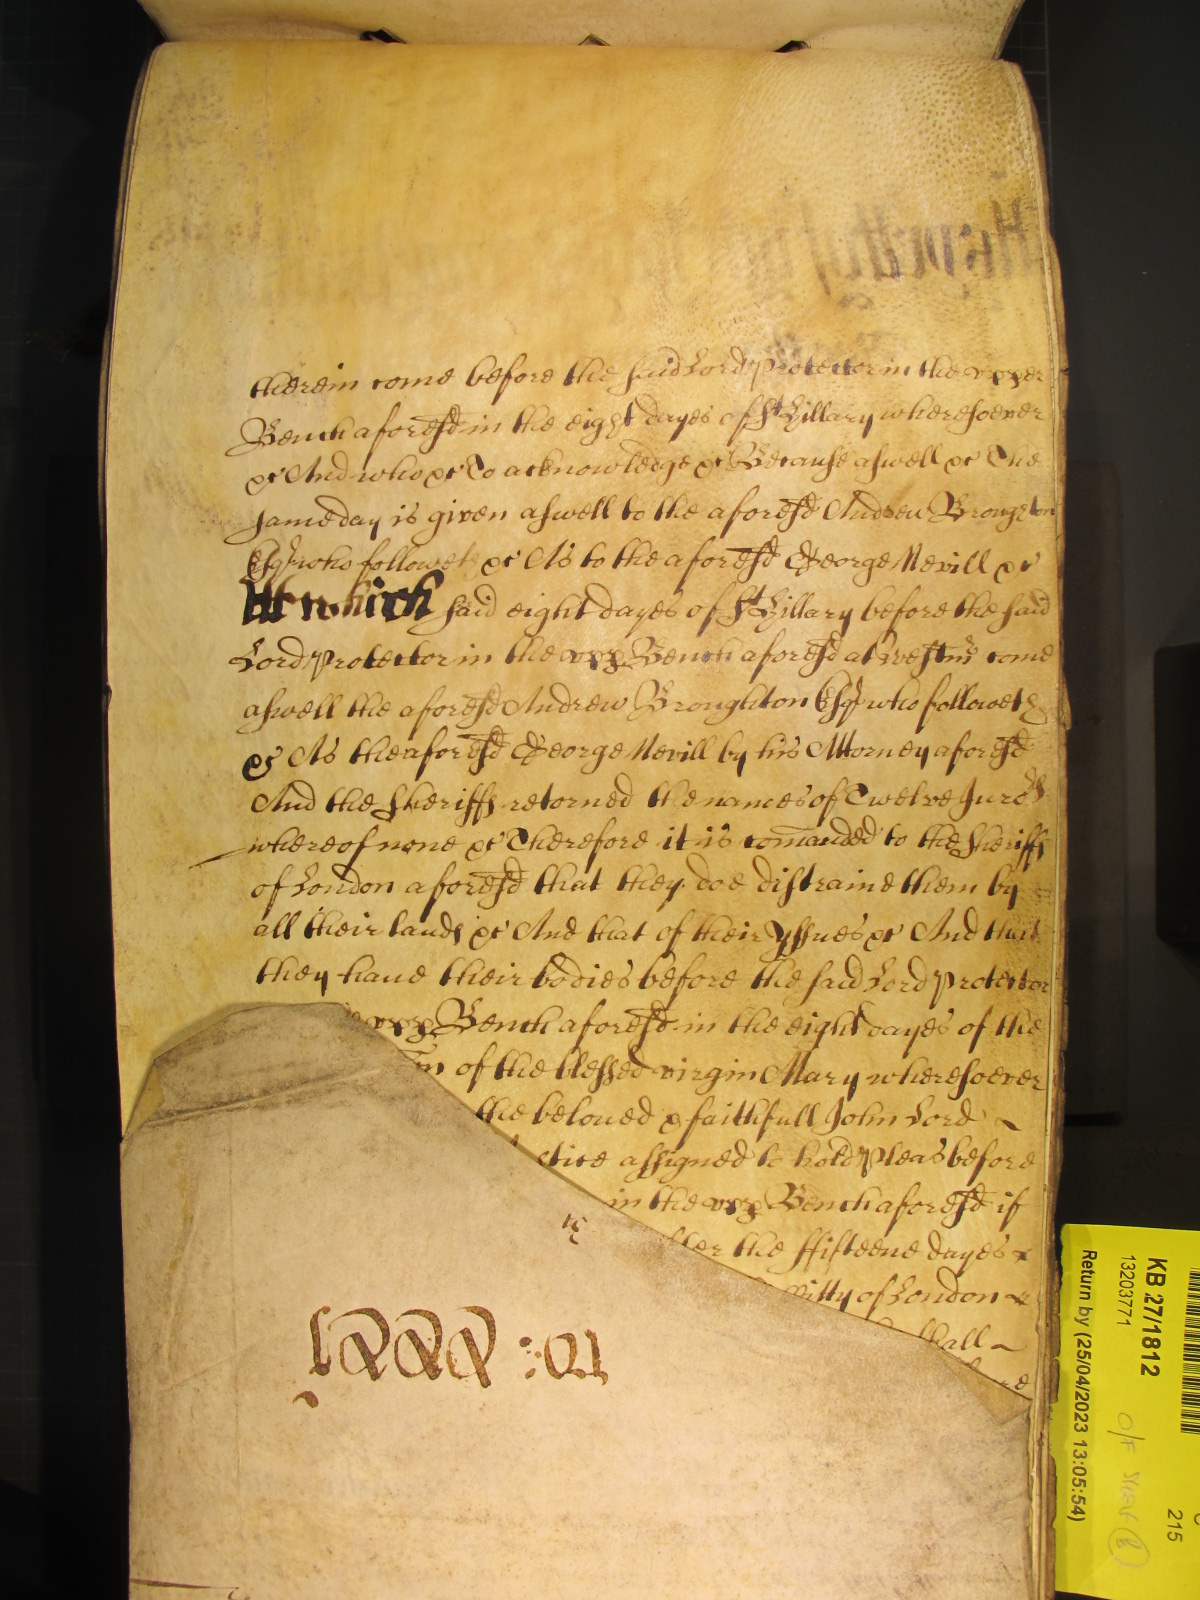 therein come before the said Lord Protector in the upper
Bench aforesd in the eight dayes of St Hillary wheresoever
&c And who &c To acknowledge &c Because aswell &c The
same day is given aswell to the aforesd Andrew Broughton
Esqr who followeth &c As to the aforesd George Nevill &c
At which said eight dayes of St Hillary before the said
Lord Protector in the upp Bench aforesd at Westmr come
aswell the aforesd Andrew Broughton Esqr who followeth
&c As the aforesd George Nevill by his Attorney aforesd
And the Sheriffs retorned the names of Twelve Jurors
whereof none &c Therefore it is comanded to the Sheriffs
of London aforesd that they doe distraine them by
all their lands &c And that of their yssues &c And that
they have their bodies before the said Lord Protector
upp Bench aforesd in the eight dayes of the
of the blessed virgin Mary wheresoever
the beloved & faithfull John Lord
stice assigned to hold Pleas before
in the upp Bench aforesd if
the ffifteene dayes
Citty of London
hall
KB 27/1812
13203771
Return by (25/04/2023 13:05:54)
215